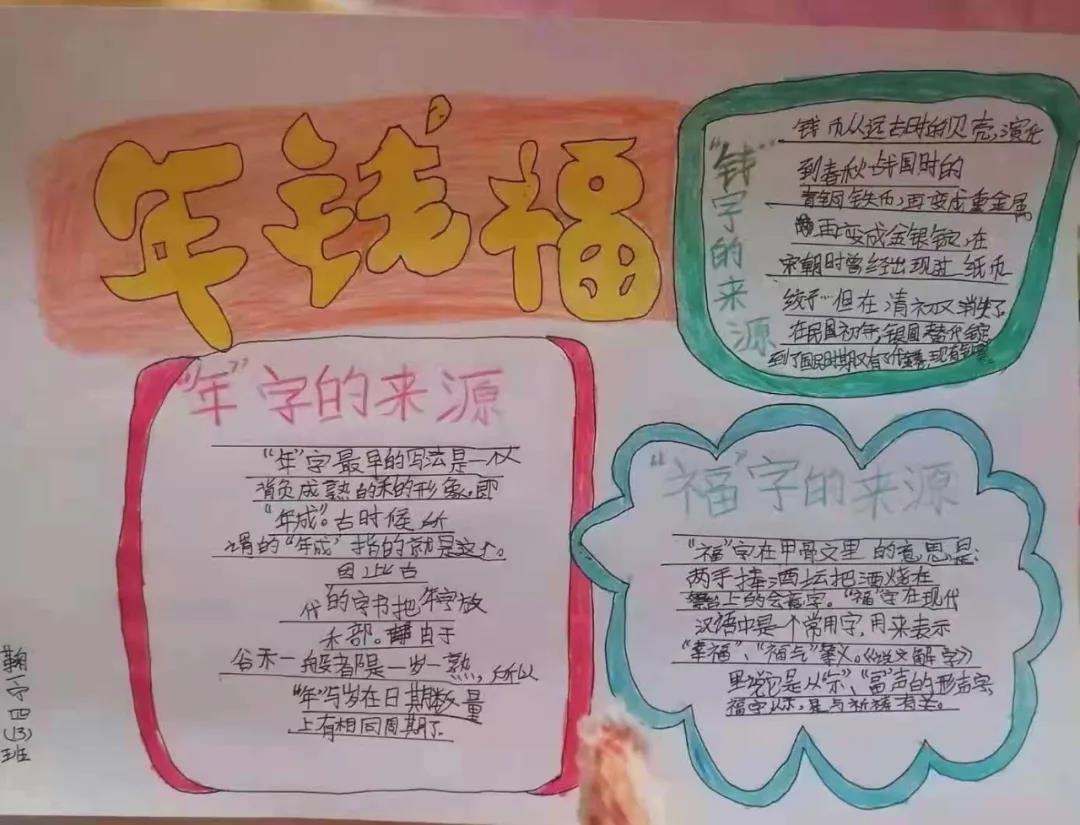 年钱福
"钱"字的来源
钱币从远古时的贝壳,演化
到春秋战国时的
青铜铁币,再变成重金属
再变成金银锭,在
宋朝时曾经出现过纸币
但在清初又消失了
在民国初年,银圆替代
到了国民时期又有了
"年"字的来源
"年"字最早的写法是一个人
背负成熟的禾的形象,即
"年成"。古时候所
谓的"年成"指的就是这个。
因此古
代的字书把年字放
禾部。由于
谷禾一般都是一岁一熟,所以
"年"与岁在日期数量
上有相同周期了
"福"字的来源
"福"字在甲骨文里的意思是:
两手捧酒坛把酒烧在
上的会意字。"福"字在现代
汉语中是一个常用字,用来表示
"幸福"、"福气"《说文解字》
里说它是从"示"、"畐"声的形声字,
福字从示,是与祈祷有关。
四(13)班